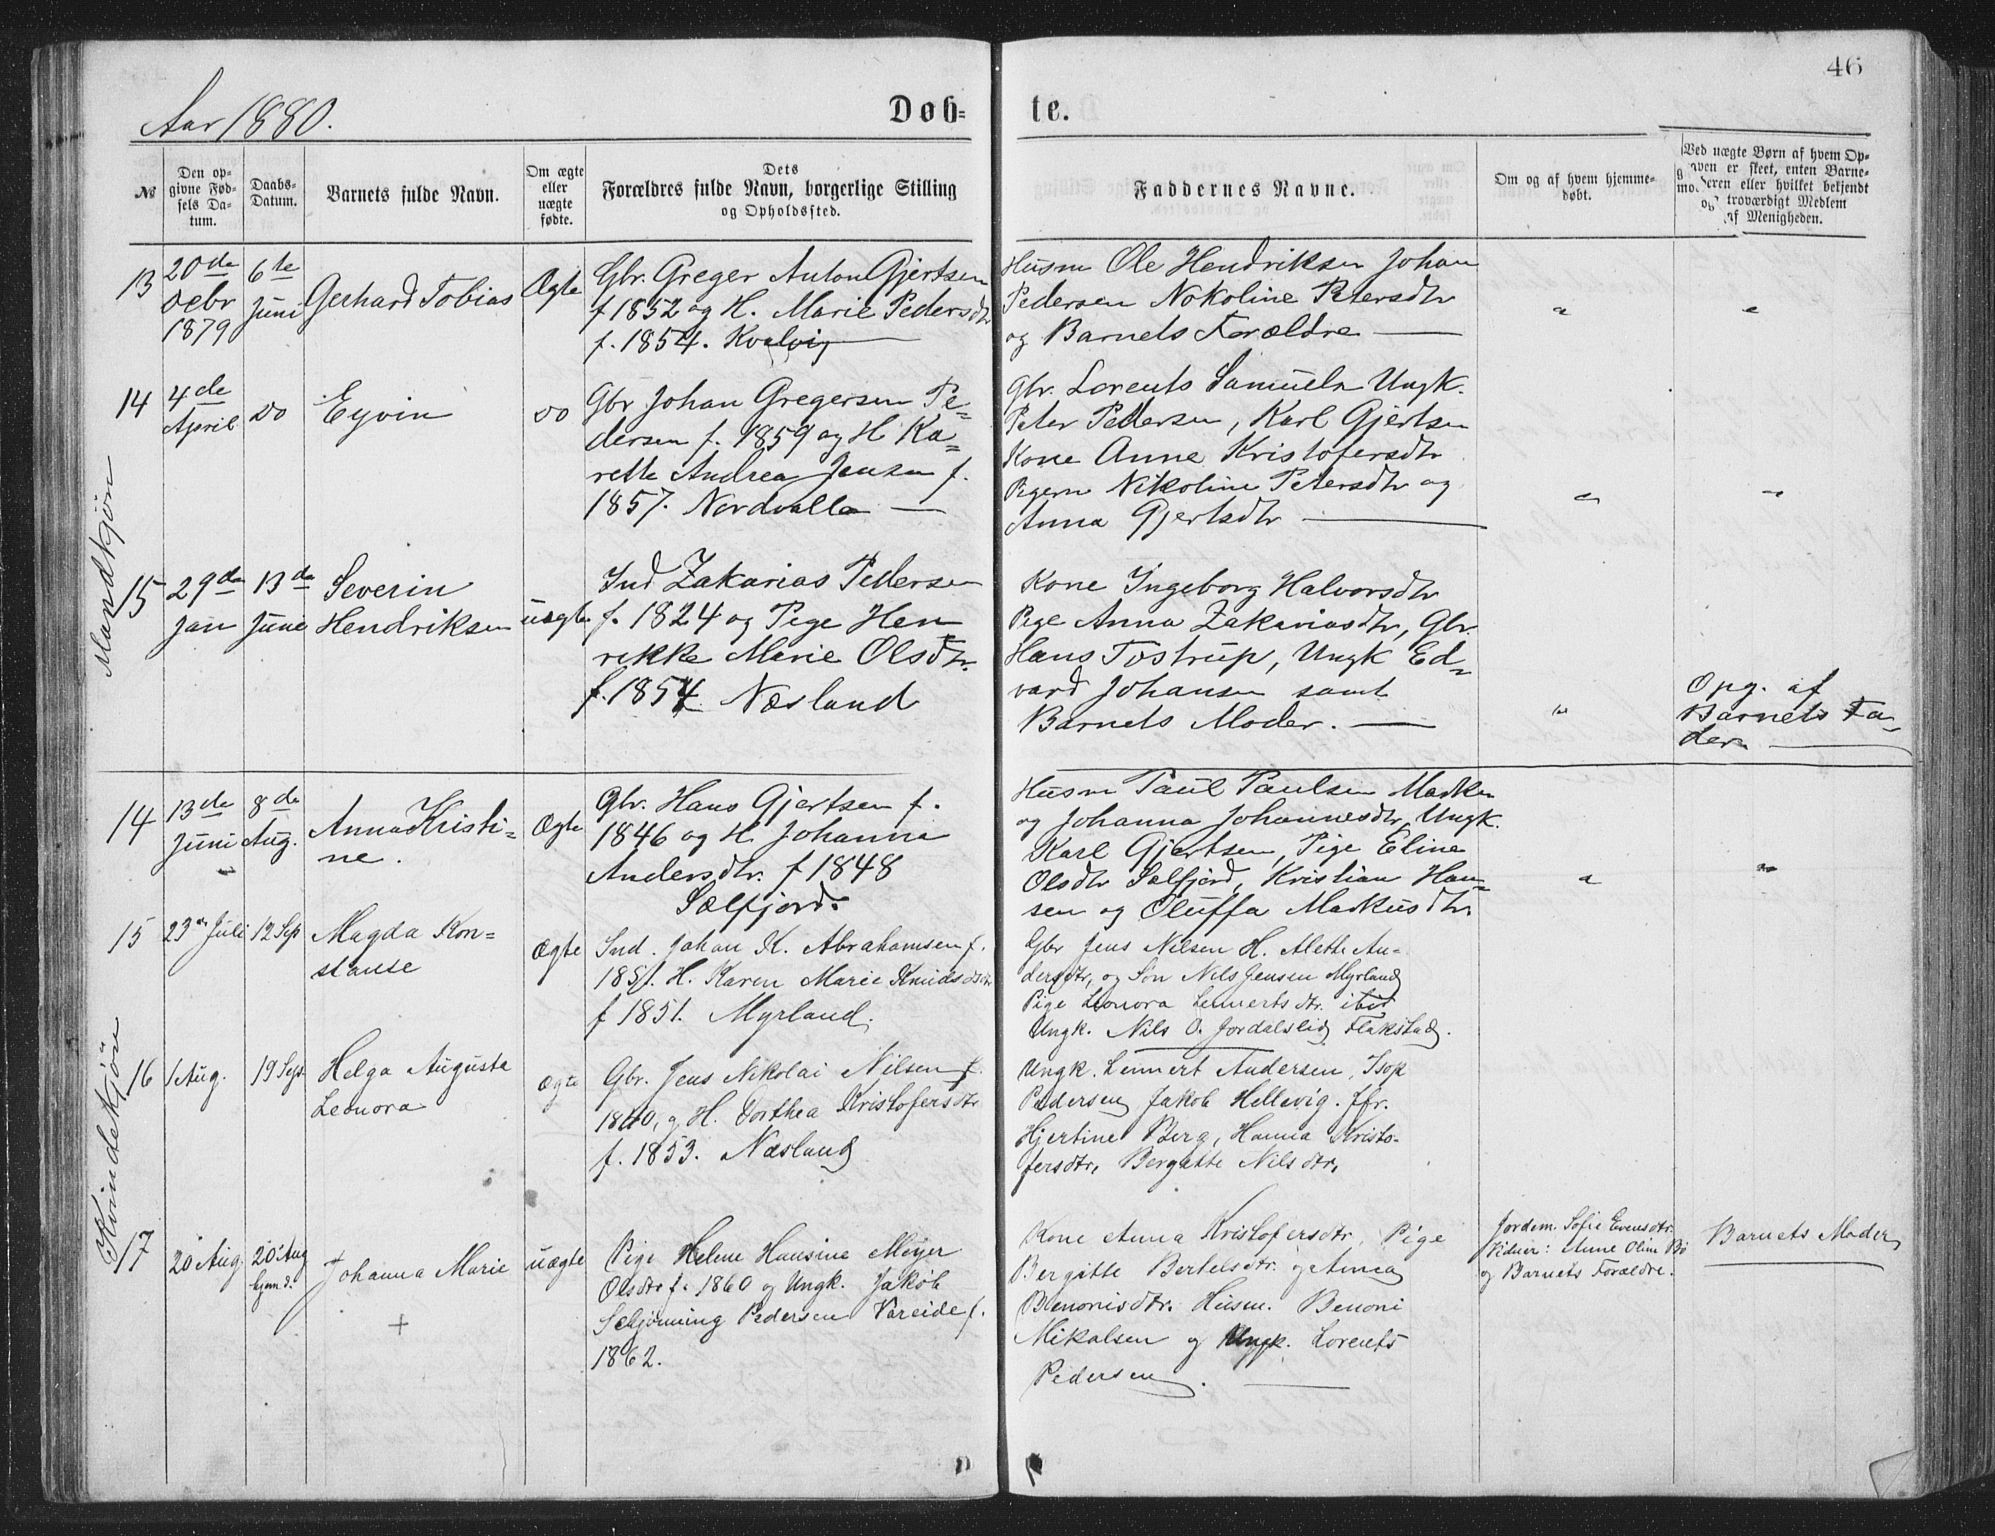 46
Aar 1880.
Døb-
te.
№
Den op-
givne Fød-
sels Da-
tum.
Daabs-
Datum.
Barnets fulde Navn.
Om ægte
eller
uægte
fødte.
Dets
Forældres fulde Navn, borgerlige Stilling
og Opholdssted.
Faddernes Navne.
Om og af hvem hjemme-
døbt.
Ved uægte Børn af hvem Op-
gaven er skeet, enten Barne-
moderen eller hvilket bekjendt
og troværdigt Medlem
af Menigheden.
Mandkjøn
13
20de
Decbr
1879
6te
Juni
Gerhard Tobias
Ægte
Gbr. Greger Anton Gjertsen
f 1852 og H. Marie Pedersdtr
f. 1854. Kvalvig
Husm Ole Hendriksen Johan
Pedersen Nokoline Petersdtr
og Barnets Forældre
14
4de
April
Do
Eyvin
Do
Gbr Johan Gregersen Pe=
dersen f. 1859 og H Ka=
rette Andrea Jensen f.
1857. Nordvalle
Gbr. Lorents Samuels Ungk.
Peter Pedersen, Karl Gjertsen
Kone Anne Kristofersdtr
Pigern Nikoline Petersdtr og
Anna Gjertsdtr
15
29de
Jan
13de
June
Severin
Hendriksen
uægte
Ind Zakarias Pedersen
f. 1824 og Pige Hen
rikke Marie Olsdtr.
f. 1854 Næsland
Kone Ingeborg Halvorsdtr
Pige Anna Zakariasdtr, Gbr.
Hans Tostrup, Ungk Ed-
vard Johansen samt
Barnets Moder.
Opg. af
Barnets Fa-
der.
Kvindekjøn
14
13de
Juni
8de
Aug.
Anna Kristi-
ne.
Ægte
Gbr. Hans Gjertsen f.
1846 og H. Johanna
Andersdtr. f 1848
Sælfjord.
Husm Paul Paulsen
og Johanna Johannesdtr, Ungk.
Karl Gjertsen, Pige Eline
Olsdtr Sælfjord, Kristian Han-
sen og Oluffa Markusdtr
15
23de Juli
12 Sep
Magda Kon=
stanse
Ægte
Ind. Johan K. Abrahamsen f.
1851. H. Karen Marie Knudsdtr
f 1851. Myrland.
Gbr Jens Nilsen H. Alethe An-
dersdtr, og Søn Nils Jensen Myrland
Pige Leonora Lennertsdtr. ibid
Ungk. Nils O. Jordalslid Flakstad.
16
1 Aug.
19 Sept
Helga Augusta
Leonora
Ægte
Gbr. Jens Nikolai Nilsen f.
1840, og H. Dorthea Kristofersdtr
f. 1853. Næsland
Ungk. Lennert Andersen, Isop
Pedersen Jakob Hellevig. Jfr.
Hjertine Berg, Hanna Kristo-
fersdtr, Bergitte Nilsdtr,
17
20 Aug.
20 Aug
hjemd.
Johanna Marie
+
uægte
Pige Helene Hansine Meyer
Olsdtr f. 1860 og Ungk. Jakob
Schjønning Pedersen Vareide f.
1862.
Kone Anna Kristofersdtr, Pige
Bergitte Bertelsdtr. og Anna
Benonisdtr. Husm. Benoni
Mikalsen og Ungk. Lorents
Pedersen.
Jordem. Sofie Evensdtr.
Vidner: Anne Oline Bø
og Barnets Forældre.
Barnets Moder